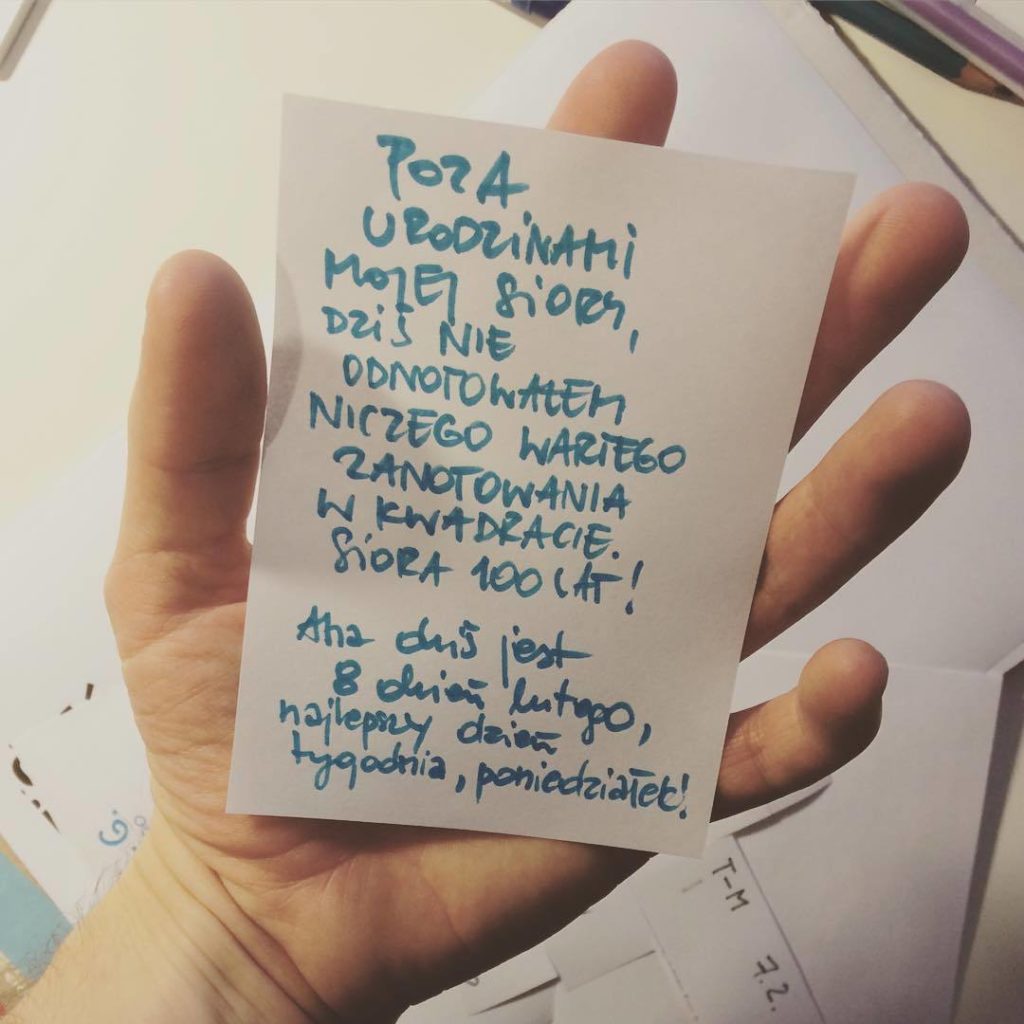 POZA
URODZINAMI
MOJEJ SIORY,
DZIŚ NIE
ODNOTOWAŁEM
NICZEGO WARTEGO
ZANOTOWANIA
W KWADRACIE.
SIORA 100 LAT!
Aha dziś jest
8 dzień lutego,
najlepszy dzień
tygodnia, poniedziałek!
T-M 7.2.